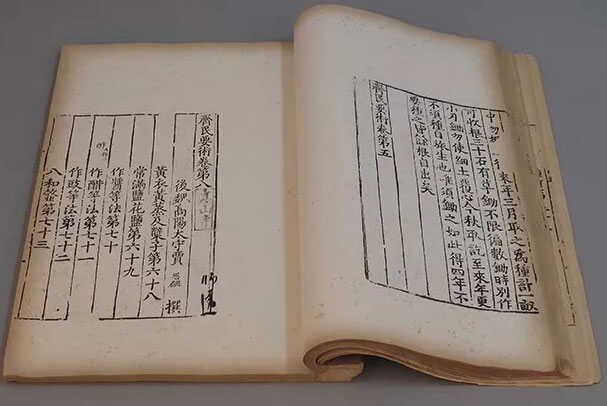 中勿 來年三月取之為種計畝
可收根三十石有草鋤不限徧數鋤時別作
小刃鋤勿使細土覆心今秋取訖至來年更
不須種自旅生也惟須鋤之如此得四年不
要種之皆餘根自出矣
齊民要術卷第五
齊民要術卷第八
後魏高陽太守賈 思勰 撰
黃衣黃蒸及糵子第六十八
常滿鹽花鹽第六十九
作醬等法第七十
作酢等法第七十一
作豉等法第七十二
八和齏第七十三